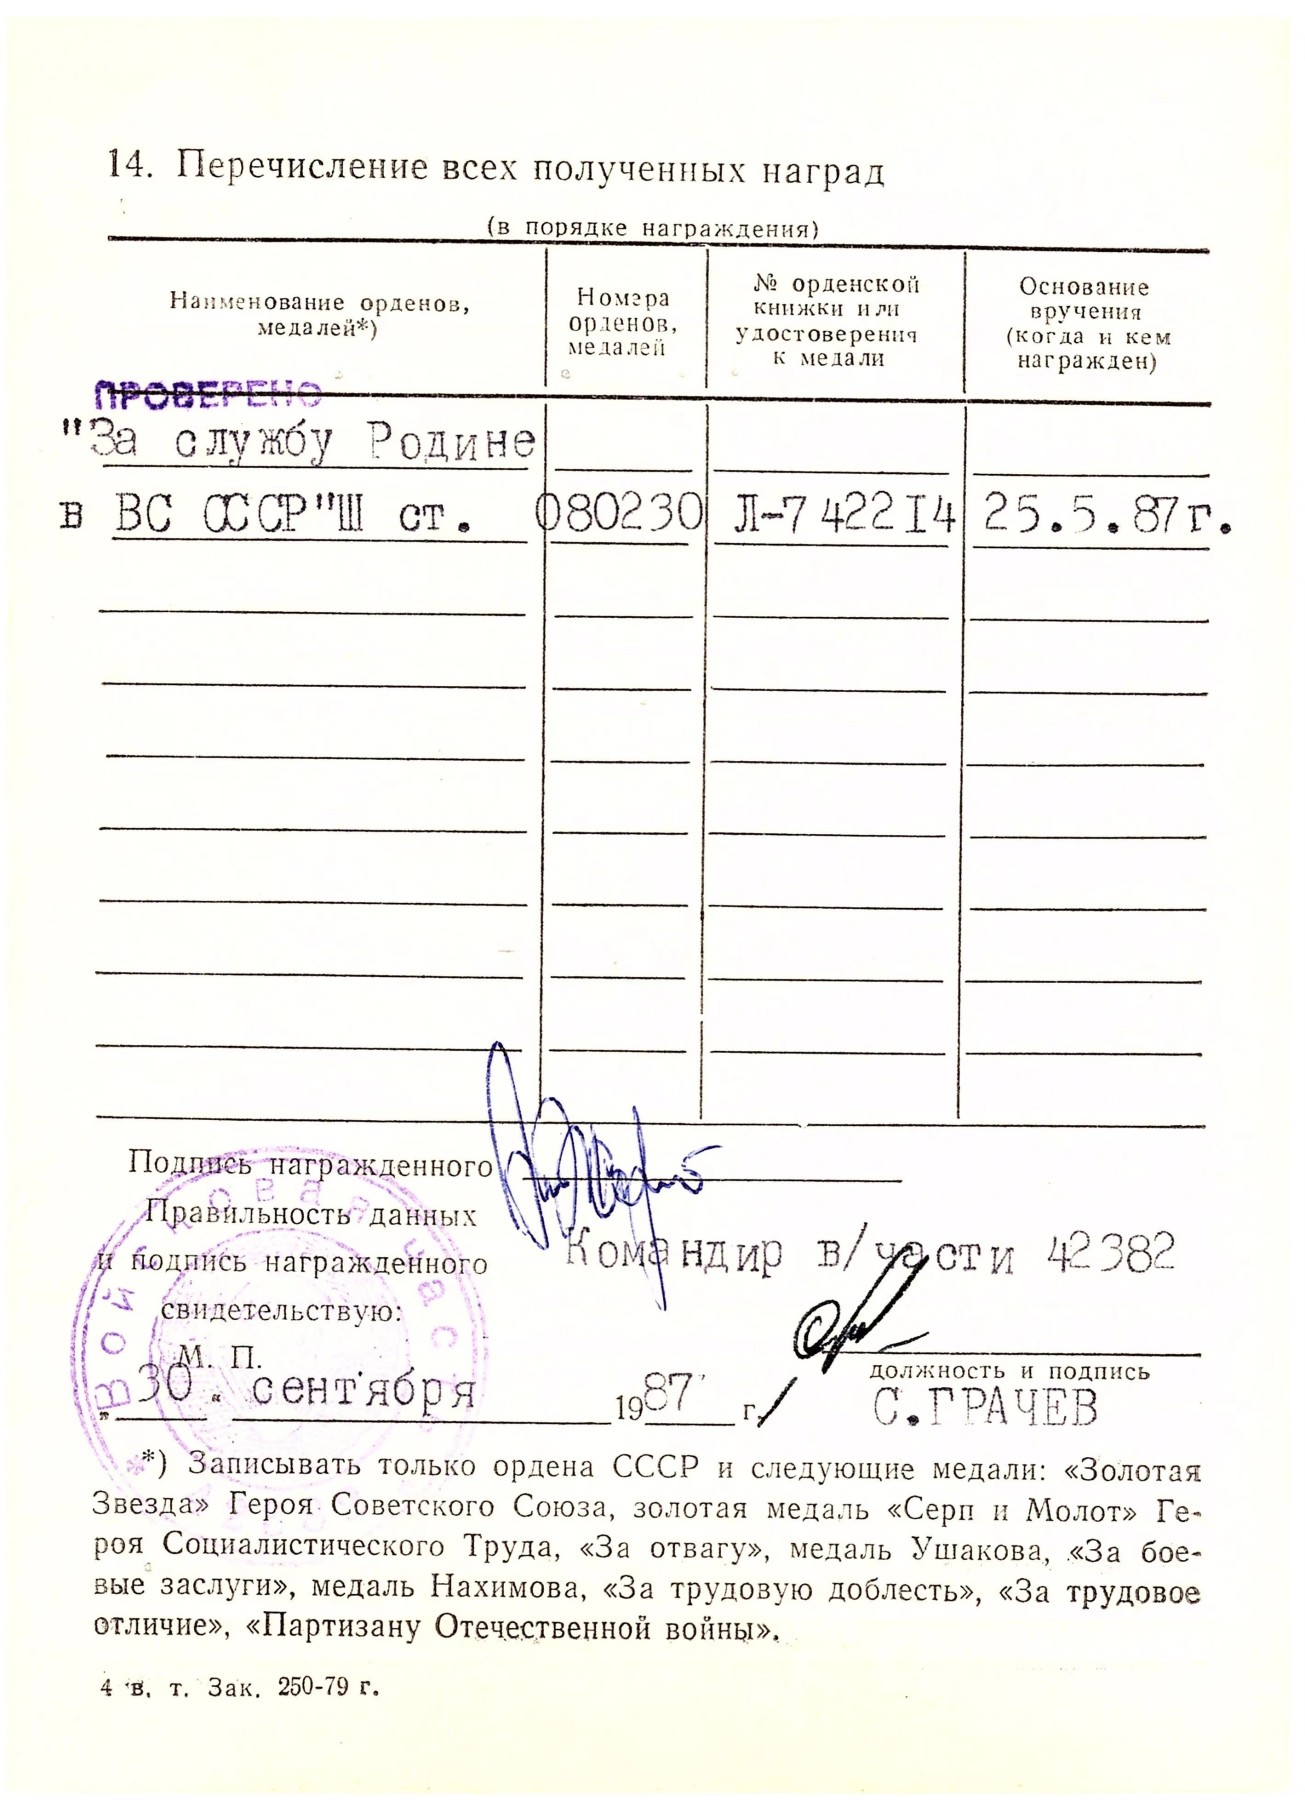 14. Перечисление всех полученных наград
(в порядке награждения)
Наименование орденов, медалей*)
Номера орденов, медалей
№ орденской книжки или удостоверения к медали
Основание вручения (когда и кем награжден)
ПРОВЕРЕНО
"За службу Родине
в ВС СССР"Ш ст. 080230 Л-742214 25.5.87г.
Подпись награжденного
Правильность данных
и подпись награжденного
свидетельствую:
Командир в/части 42382
М. П.
должность и подпись
„ 30 “ сентября 1987 г.
С.ГРАЧЕВ
Войсковая часть
*) Записывать только ордена СССР и следующие медали: «Золотая
Звезда» Героя Советского Союза, золотая медаль «Серп и Молот» Ге-
роя Социалистического Труда, «За отвагу», медаль Ушакова, «За бое-
вые заслуги», медаль Нахимова, «За трудовую доблесть», «За трудовое
отличие», «Партизану Отечественной войны».
4 в. т. Зак. 250-79 г.